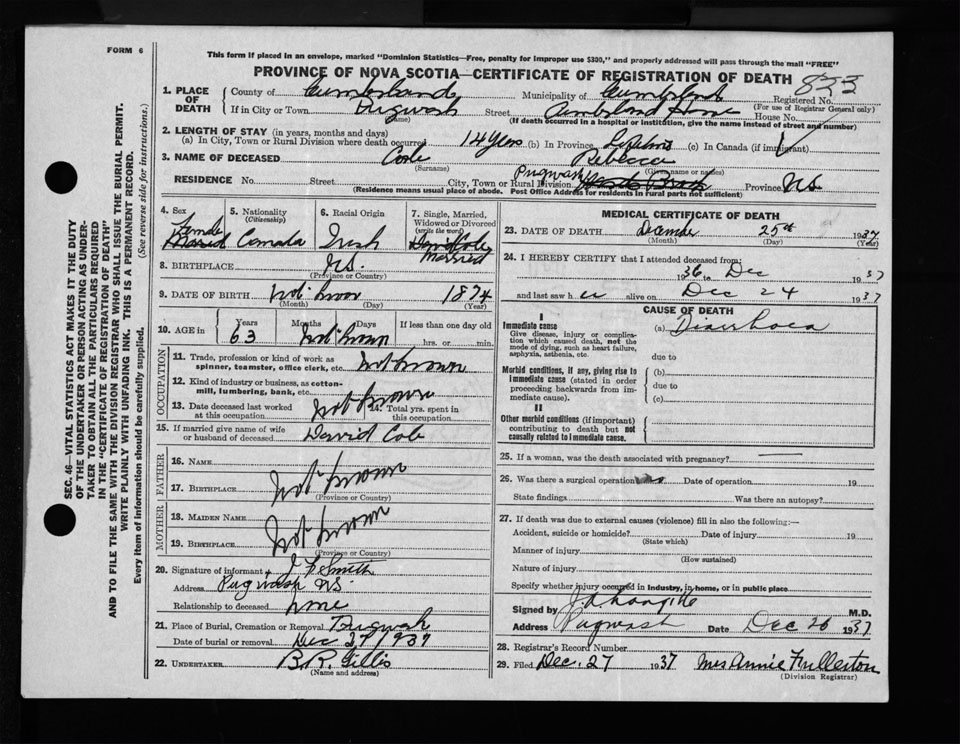 FORM 6
This form if placed in an envelope, marked "Dominion Statistics—Free, penalty for improper use $300," and properly addressed will pass through the mail "FREE"
PROVINCE OF NOVA SCOTIA—CERTIFICATE OF REGISTRATION OF DEATH
833
1. PLACE OF DEATH
County of Cumberland Municipality of Cumberland Registered No.
(For use of Registrar General only)
If in City or Town Pugwash Street House No.
(Name)
(If death occurred in a hospital or institution, give the name instead of street and number)
2. LENGTH OF STAY (in years, months and days)
(a) In City, Town or Rural Division where death occurred 14 Years (b) In Province (c) In Canada (if immigrant)
3. NAME OF DECEASED Cole Rebecca
(Surname) (Given name or names)
RESIDENCE No. Street City, Town or Rural Division Pugwash Province N.S.
(Residence means usual place of abode. Post Office Address for residents in rural parts not sufficient)
4. Sex Female Married
5. Nationality (Citizenship) Canada
6. Racial Origin Irish
7. Single, Married, Widowed or Divorced (write the word) David Cole Married
8. BIRTHPLACE N.S.
(Province or Country)
9. DATE OF BIRTH not known 1874
(Month) (Day) (Year)
10. AGE in Years 63 Months Days not known If less than one day old hrs. or min.
OCCUPATION
11. Trade, profession or kind of work as spinner, teamster, office clerk, etc. not known
12. Kind of industry or business, as cotton-mill, lumbering, bank, etc.
13. Date deceased last worked at this occupation not known
14. Total yrs. spent in this occupation
15. If married give name of wife or husband of deceased David Cole
FATHER
16. NAME
17. BIRTHPLACE not known
(Province or Country)
MOTHER
18. MAIDEN NAME
19. BIRTHPLACE not known
(Province or Country)
20. Signature of informant J F Smith
Address Pugwash N.S.
Relationship to deceased none
21. Place of Burial, Cremation or Removal Pugwash
Date of burial or removal Dec 27/1937
22. UNDERTAKER B.R. Gillis
(Name and address)
MEDICAL CERTIFICATE OF DEATH
23. DATE OF DEATH December 25th 1937
(Month) (Day) (Year)
24. I HEREBY CERTIFY that I attended deceased from:
1936 to Dec 1937
and last saw her alive on Dec 24 1937
CAUSE OF DEATH
I
Immediate cause
Give disease, injury or complication which caused death, not the mode of dying, such as heart failure, asphyxia, asthenia, etc.
(a) Diarrhoea
due to
Morbid conditions, if any, giving rise to immediate cause (stated in order proceeding backwards from immediate cause).
(b)
due to
(c)
II
Other morbid conditions (if important) contributing to death but not causally related to immediate cause.
25. If a woman, was the death associated with pregnancy? —
26. Was there a surgical operation no Date of operation 19
State findings Was there an autopsy?
27. If death was due to external causes (violence) fill in also the following:—
Accident, suicide or homicide? Date of injury 19
(State which)
Manner of injury
(How sustained)
Nature of injury
Specify whether injury occurred in industry, in home, or in public place
Signed by M.D.
Address Pugwash Date Dec 26 1937
28. Registrar's Record Number
29. Filed Dec. 27 1937 Mrs Annie Fullerton
(Division Registrar)
SEC. 46—VITAL STATISTICS ACT MAKES IT THE DUTY
OF THE UNDERTAKER OR PERSON ACTING AS UNDER-
TAKER TO OBTAIN ALL THE PARTICULARS REQUIRED
IN THE "CERTIFICATE OF REGISTRATION OF DEATH"
AND TO FILE THE SAME WITH THE DIVISION REGISTRAR WHO SHALL ISSUE THE BURIAL PERMIT.
WRITE PLAINLY WITH UNFADING INK. THIS IS A PERMANENT RECORD.
Every item of information should be carefully supplied. (See reverse side for instructions.)